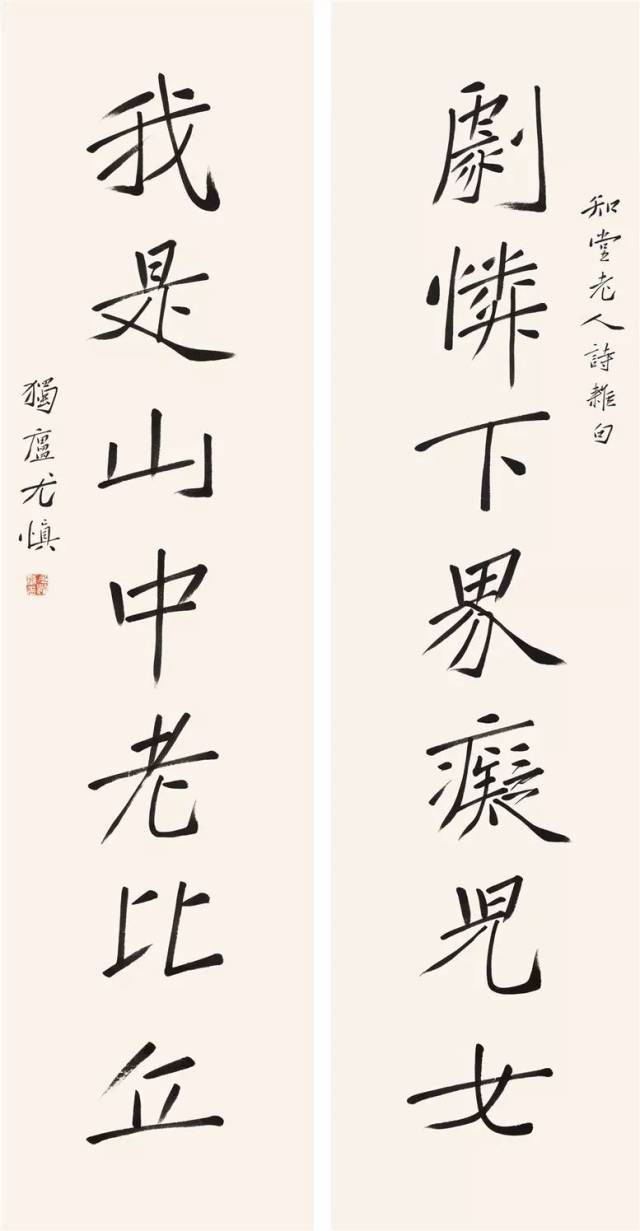 知堂老人詩雜句
劇憐下界癡兒女
我是山中老比丘
獨廬尤慎